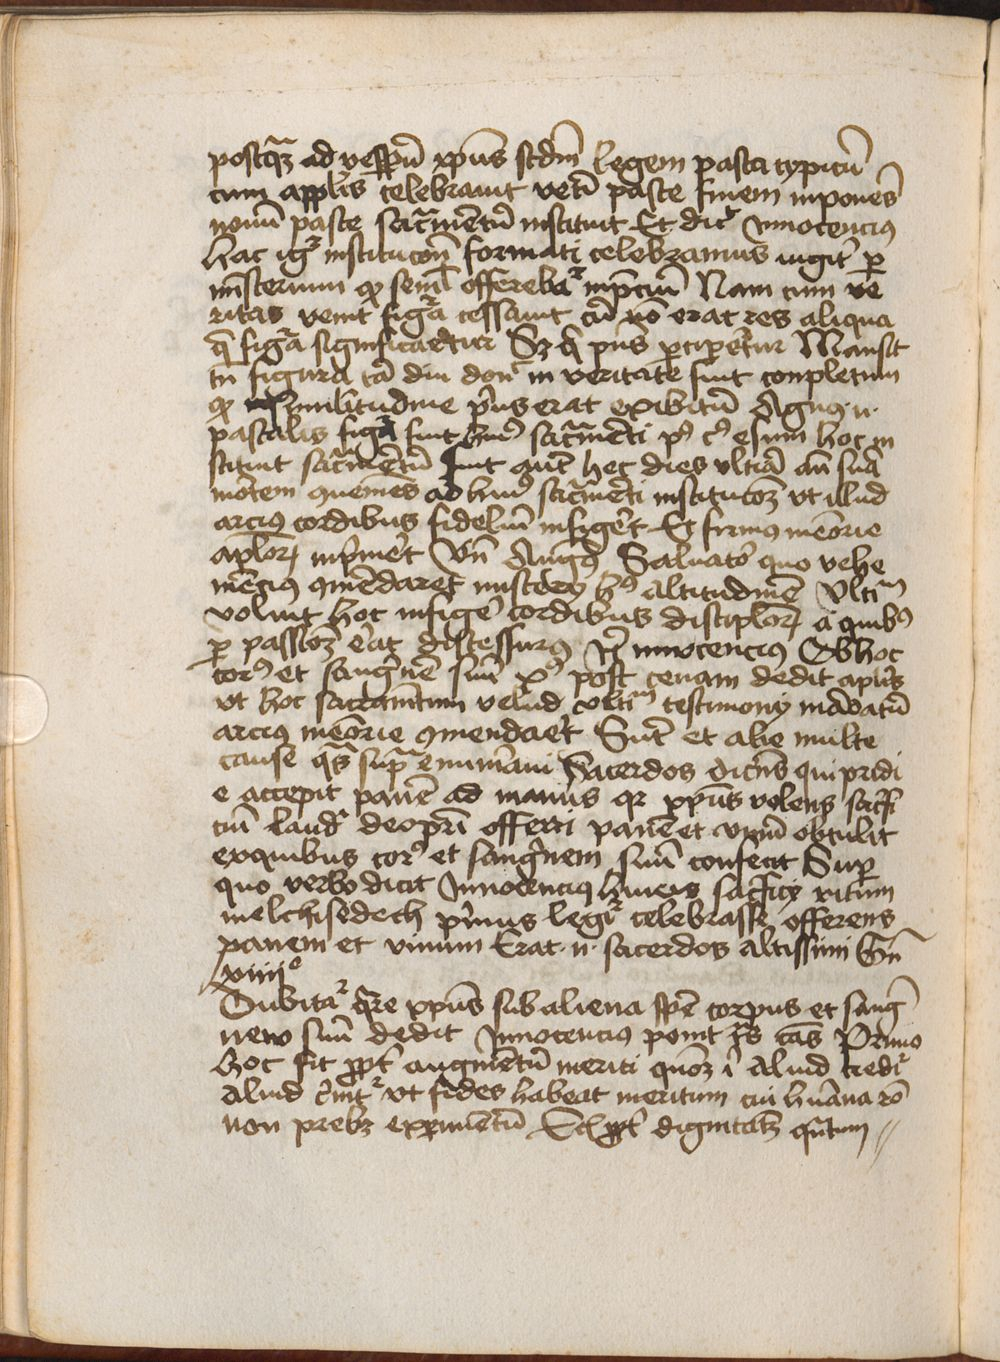 postqᷓ ad vesꝑū xp̄us scd̄m legem pasca typicū
cum appl̄is celebrauit veti᷑ pasce finem inponēs
nouū pasce sacᷓmētū instituit Et dic᷑ Innocencius
Hac igᷓ instituconē formati celebramus iugit᷑ ꝑ
mīsterium qꝫ semel offerebaᷓ in p̄ciū Nam cum ve
ritas venit figᷓa cessauit cū nō erat res aliqua
q̄ figᷓa significaretur Sꝫ q̄ p̄us ꝑciperētur Mansit
in figura tā diu don᷑ in veritate fuit conpletum
qꝫ similitudine p̄us erat exibitū Agnus .n.
pascalis figᷓa fuit huiꝰ sacᷓmēti pꝰ cꝰ esum hoc in
stituit sacᷓmētū fuit aut̄ hec dies vltiā an̄ suā
mortem ꝯueniēs ad huiꝰ sacᷓmēti institucōꝫ vt illud
arcius cordibus fideliū infiger̄t Et firmiꝰ memōrie
apl̄oꝝ inp̄mer̄t Vn̄ Augꝰ Saluator̄ quo vehe
mēciꝰ ꝯmēdaret mistery hꝰ altitudinē Vltim̄
voluit hoc infiger̄ cordibus disciploꝝ a quibꝰ
ꝑ passioꝫ er̄at discessurꝰ It̄ innocencius Ob hoc
corꝰ et sangͥnē suū xꝰ post cenam dedit apl̄is
vt hoc sacramētum velud vltim̄ testimony mādatū
arcius memōrie ꝯmendaer̄t Sūt et alie multe
cause qᷓs supᷓ enumer̄aui Sacerdos dicēs qui pridi
e accepit panē ad manus qꝛ xp̄us volens sacᷓfi
ciū laudᷓ deo pr̄i offerri panē et vinū obtulit
ex quibus corꝰ et sangͥnem suū confecit Suꝑ
quo verbo dicit Innocencius huius sacᷓficy ritum
melchisedech p̄mus legiᷓ celebrasse offerens
panem et vinum Erat .n. sacerdos altissimi Gen̄
xiiijᵒ
Dubitaᷓ qᷓre xp̄us sub aliena spē corpus et sangᷓ
neꝫ suū dedit Innocencius ponit tr̄s cās Primo
hoc fit ꝓpt̄ augmētū meriti quoꝫ ī aliud crediᷓ
Aliud cernitᷓ vt fides habeat meritum cui hūana rō
non prebꝫ exꝑimētū Scd̄ ꝓpt̄ dignitatꝫ qᷓtum //